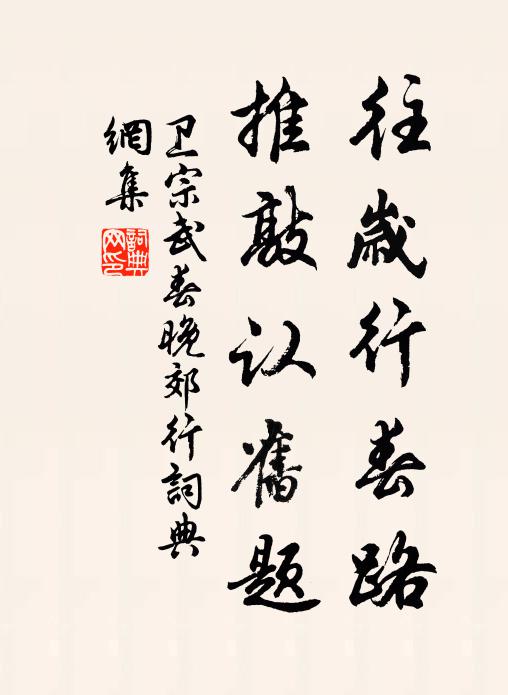 往歲行春路
推敲认舊題
卫宗武春晚郊行詞典
網集
詞典
网印